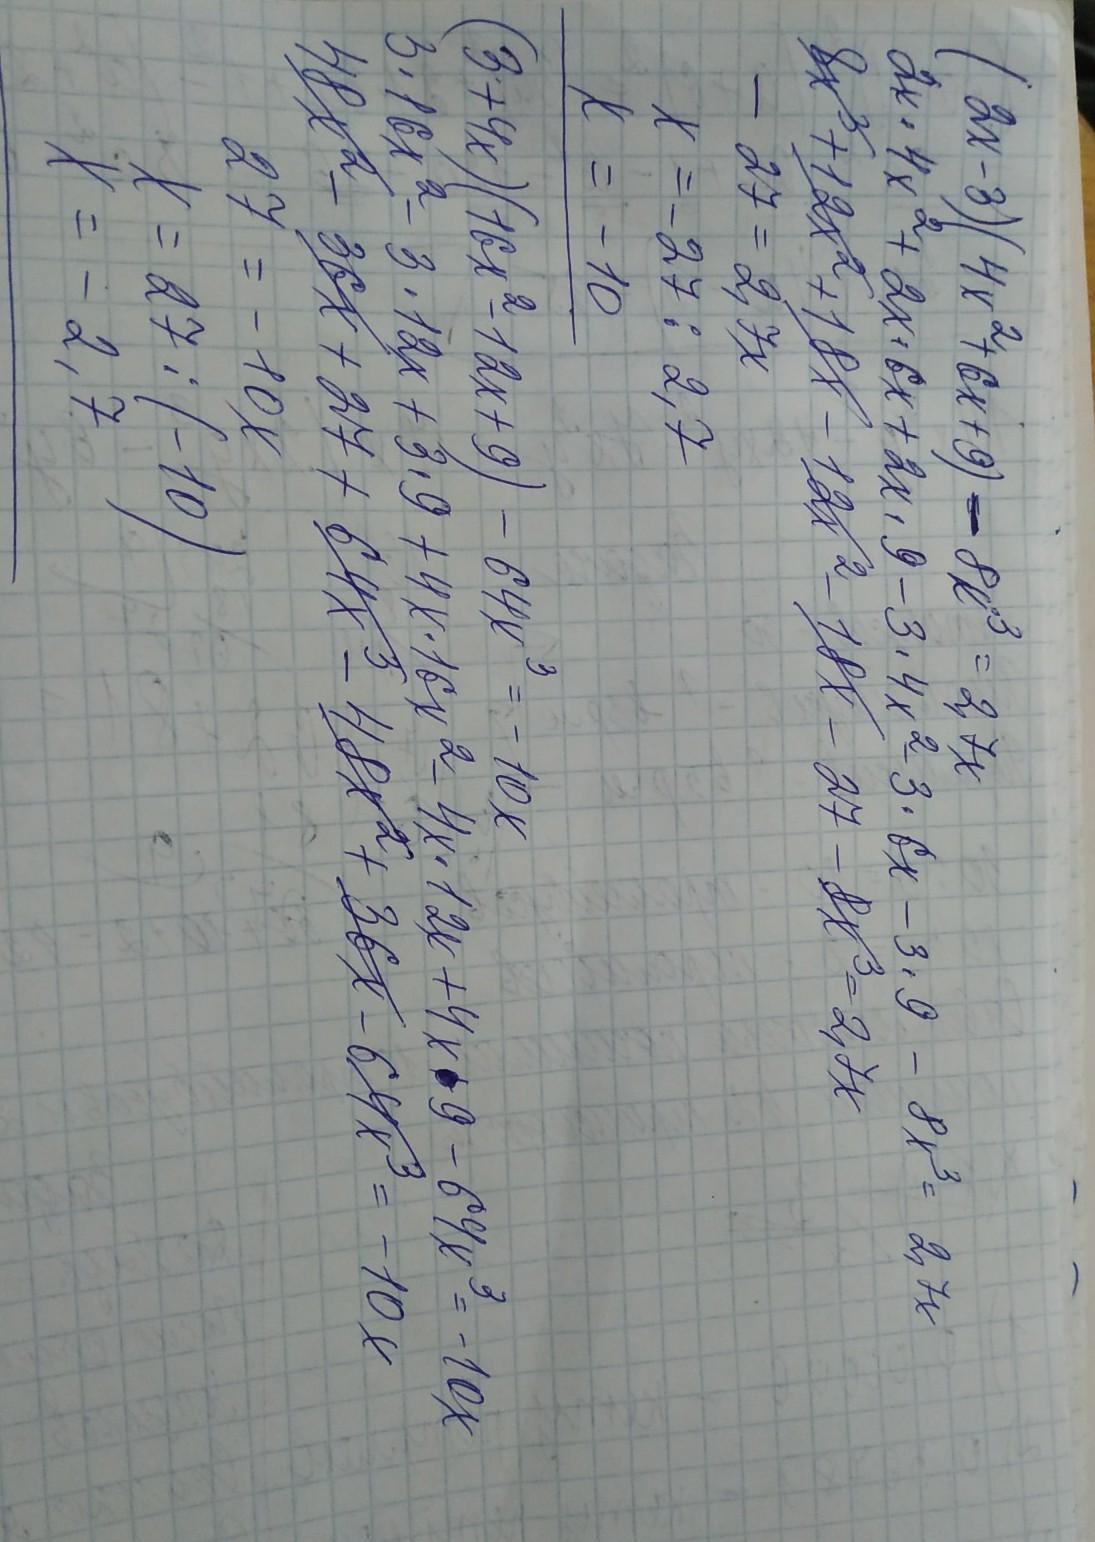 (2x-3)(4x²+6x+9)-8x³=2,7x
2x·4x²+2x·6x+2x·9-3·4x²-3·6x-3·9-8x³=2,7x
8x³+12x²+18x-12x²-18x-27-8x³=2,7x
-27=2,7x
x=-27:2,7
x=-10
(3+4x)(16x²-12x+9)-64x³=-10x
3·16x²-3·12x+3·9+4x·16x²-4x·12x+4x·9-64x³=-10x
48x²-36x+27+64x³-48x²+36x-64x³=-10x
27=-10x
x=27:(-10)
x=-2,7